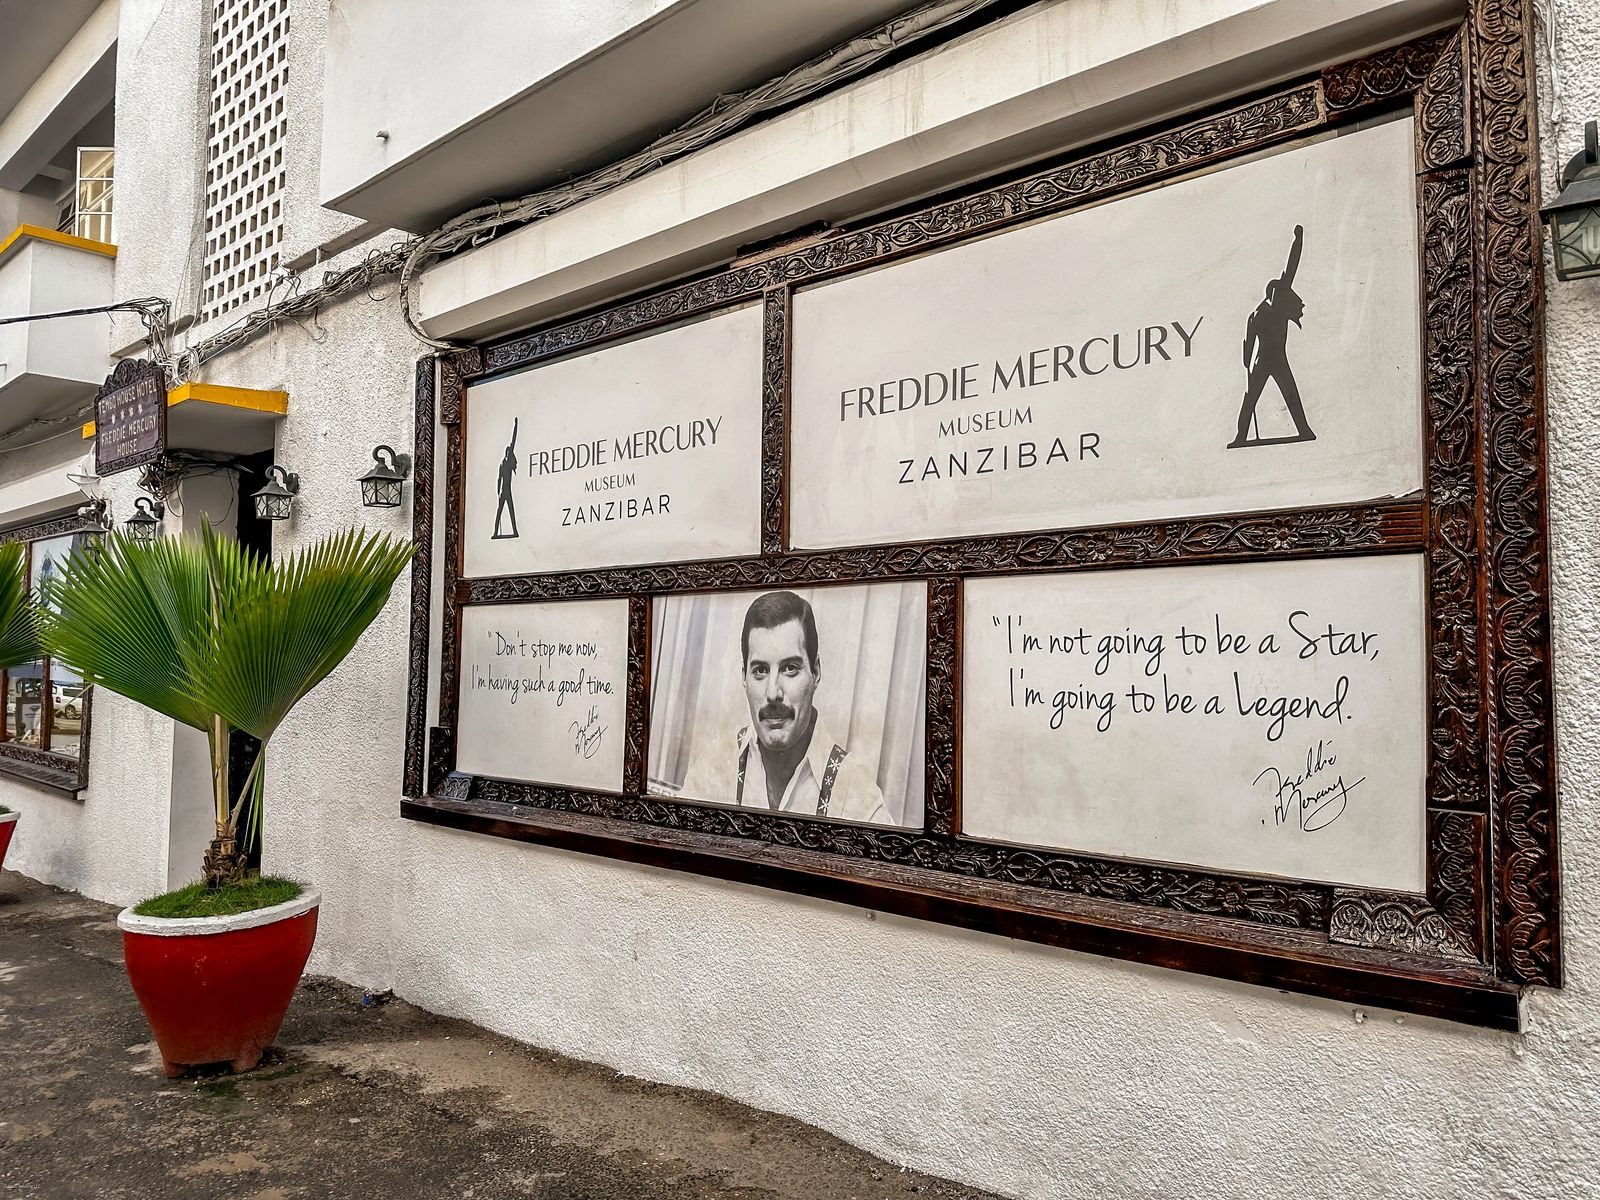 TEMBO HOUSE HOTEL
FREDDIE MERCURY
HOUSE
FREDDIE MERCURY
MUSEUM
ZANZIBAR
FREDDIE MERCURY
MUSEUM
ZANZIBAR
"Don't stop me now,
I'm having such a good time.
Freddie
Mercury
"I'm not going to be a Star,
I'm going to be a Legend.
Freddie
Mercury